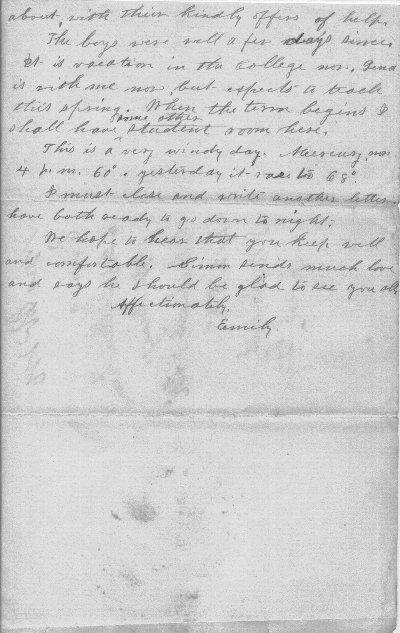 about, with their kindly offers of help.
The boys were well a few days since.
It is vacation in the college now. Lena
is with me now but expects to teach
this spring. When the term begins I
shall have some other student room here.
This is a very windy day. Mercury now
4 p. m. 60°. yesterday it rose to 68°.
I must close and write another letter.
have both ready to go down to night.
We hope to hear that you keep well
and comfortable. Simon sends much love
and says he should be glad to see you all
Affectionately,
Emily